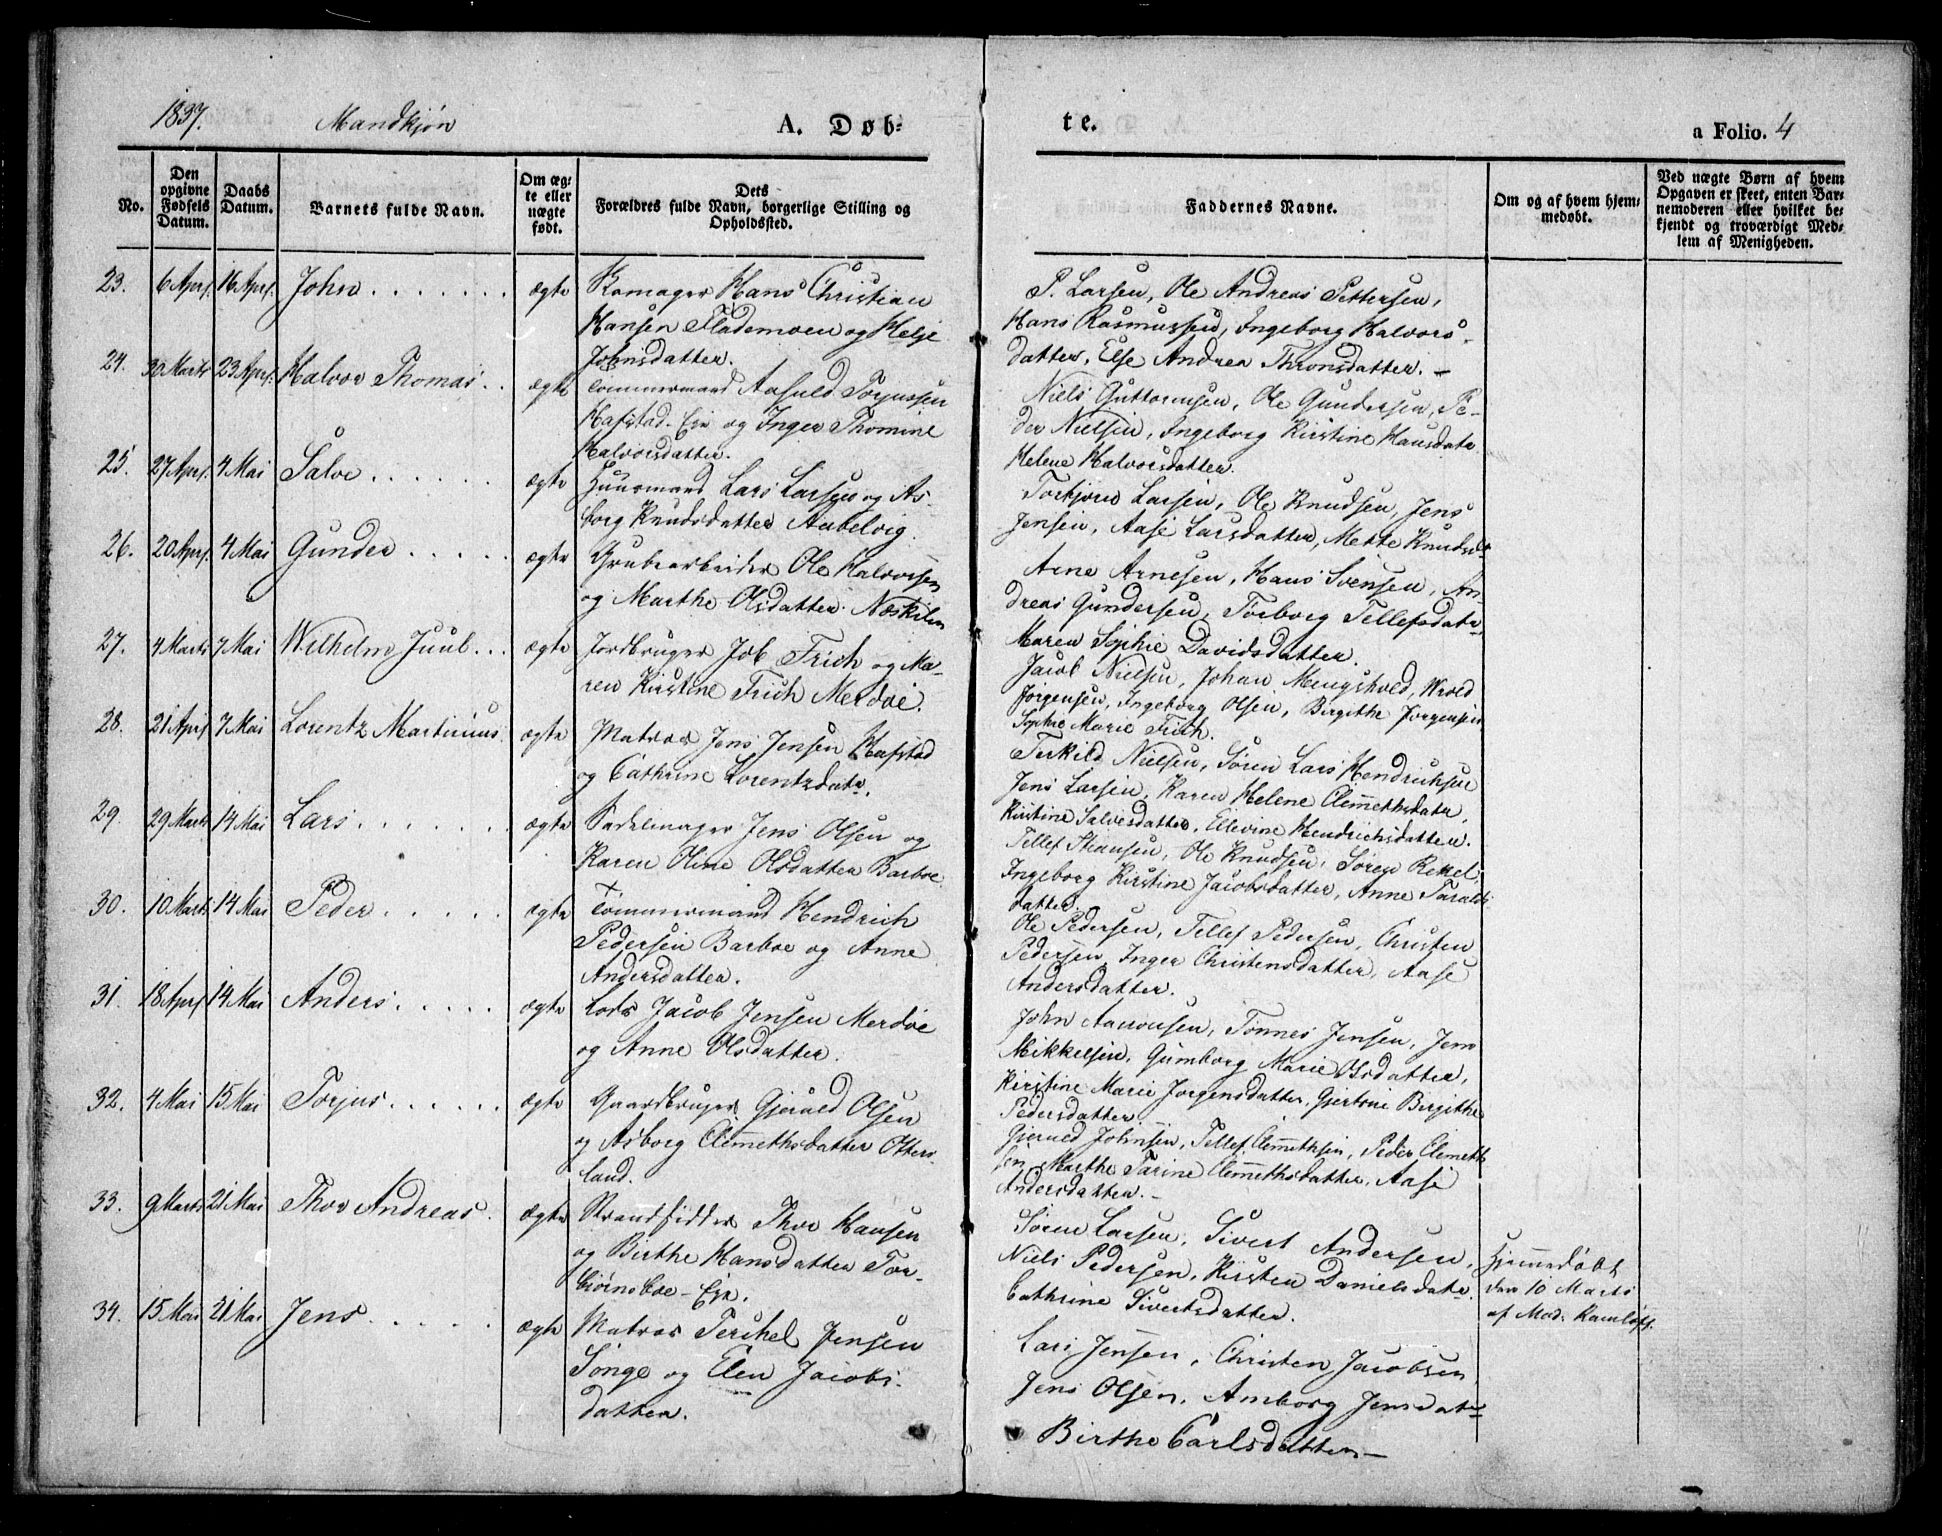 1837. Mandkjön A. Døb-
te. a Folio. 4
No.
Den opgivne Fødsels Datum.
Daabs Datum.
Barnets fulde Navn.
Om ægte eller nægte født.
Dets Forældres fulde Navn, borgerlige Stilling og Opholdssted.
Faddernes Navne.
Om og af hvem hjemmedøbt.
Ved nægte Børn af hvem Opgaven er skeet, enten Barnemoderen eller hvilket bekjendt og troværdigt Medlem af Menigheden.
23. 6 April 16 April John ægte
Hans Christian
Hansen Flademoen og Helje
Johnsdatter.
P. Larsen, Ole Andreas Pettersen,
Hans Rasmussen, Ingeborg Halvors-
datter, Else Andrea Thronsdatter. –
24. 30 Marts 23 April Halvor Thomas ægte
Tömmermand Aasuld Torjussen
Hafstad-Eje og Inger Thomine
Halvorsdatter.
Niels Guttormsen, Ole Gundersen, Pe-
der Nielsen, Ingeborg Kirstine Hansdatr
Helene Halvorsdatter.
25. 27 April 4 Mai Salve ægte
Huusmand Lars Larsen og As-
borg Knudsdatter Aubelvig.
Torkjörn Larsen, Ole Knudsen, Jens
Jensen, Aase Larsdatter, Mette Knudsdr
26. 20 April 4 Mai Gunder ægte
Grubearbeider Ole Halvorsen
og Marthe Olsdatter. Neskilen
Arne Arnesen, Hans Svensen, An-
dreas Gundersen, Torborg Tellefsdatr
Maren Sophie Davidsdatter.
27. 4 Marts 7 Mai Wilhelm Juul ægte
Jordbruger Job Frich og Ma-
ren Kirstine Frich Merdöe.
Jacob Nielsen, Johan Mengshold, Wrold
Jörgensen, Ingeborg Olsen, Birgithe Jörgensen
Sophie Marie Frich.
28. 21 April 7 Mai Lorentz Martinius ægte
Matros Jens Jensen Hafstad
og Cathrine Lorentzdatr.
Terkild Nielsen, Sören Lars Hendrichsen
Jens Larsen, Karen Helene Clemethsdatr,
Kirstine Salvesdatter, Ellevine Hendrichsdatter.
29. 29 Marts 14 Mai Lars ægte
Sadelmager Jens Olsen og
Karen Oline Olsdatter Barboe
Tellef Hansen, Ole Knudsen, Sören Rekel,
Ingeborg Kirstine Jacobsdatter, Anne Taralds-
datter.
30. 10 Marts 14 Mai Peder ægte
Tömmermand Hendrich
Pedersen Barboe og Anne
Andersdatter.
Ole Pedersen, Tellef Pedersen, Christen
Pedersen, Inger Christensdatter, Aase
Andersdatter.
31. 18 April 14 Mai Anders ægte
Lods Jacob Jensen Merdöe
og Anne Olsdatter.
John Aanonsen, Tönnes Jensen, Jens
Mikkelsen, Gumborg Marie Olsdatter,
Kirstine Marie Jörgensdatter, Gjertine Birgithe
Pedersdatter.
32. 4 Mai 15 Mai Torjus ægte
Gaardbruger Gjeruld Olsen
og Asborg Clemethsdatter Otters-
land.
Gjeruld Johnsen, Tellef Clemethsen, Peder Clemeth-
sen, Marthe Tarine Clemethsdatter, Aase
Andersdatter. –
33. 9 Marts 21 Mai Thor Andreas ægte
Strandsidder Thor Hansen
og Birthe Hansdatter Tor-
biörnsboe-Eje.
Sören Larsen, Sivert Andersen,
Niels Pedersen, Kirsten Danielsdatr.
Cathrine Sivertsdatter.
Hjemmedöbt
den 10 Marts
af Mad.
34. 15 Mai 21 Mai Jens ægte
Matros Terchel Jensen
Songe og Elen Jacobs-
datter.
Lars Jensen, Christen Jacobsen,
Jens Olsen, Amborg Jensdatr
Birthe Carlsdatter –